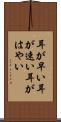 耳が早い耳
が速い耳が
はやい